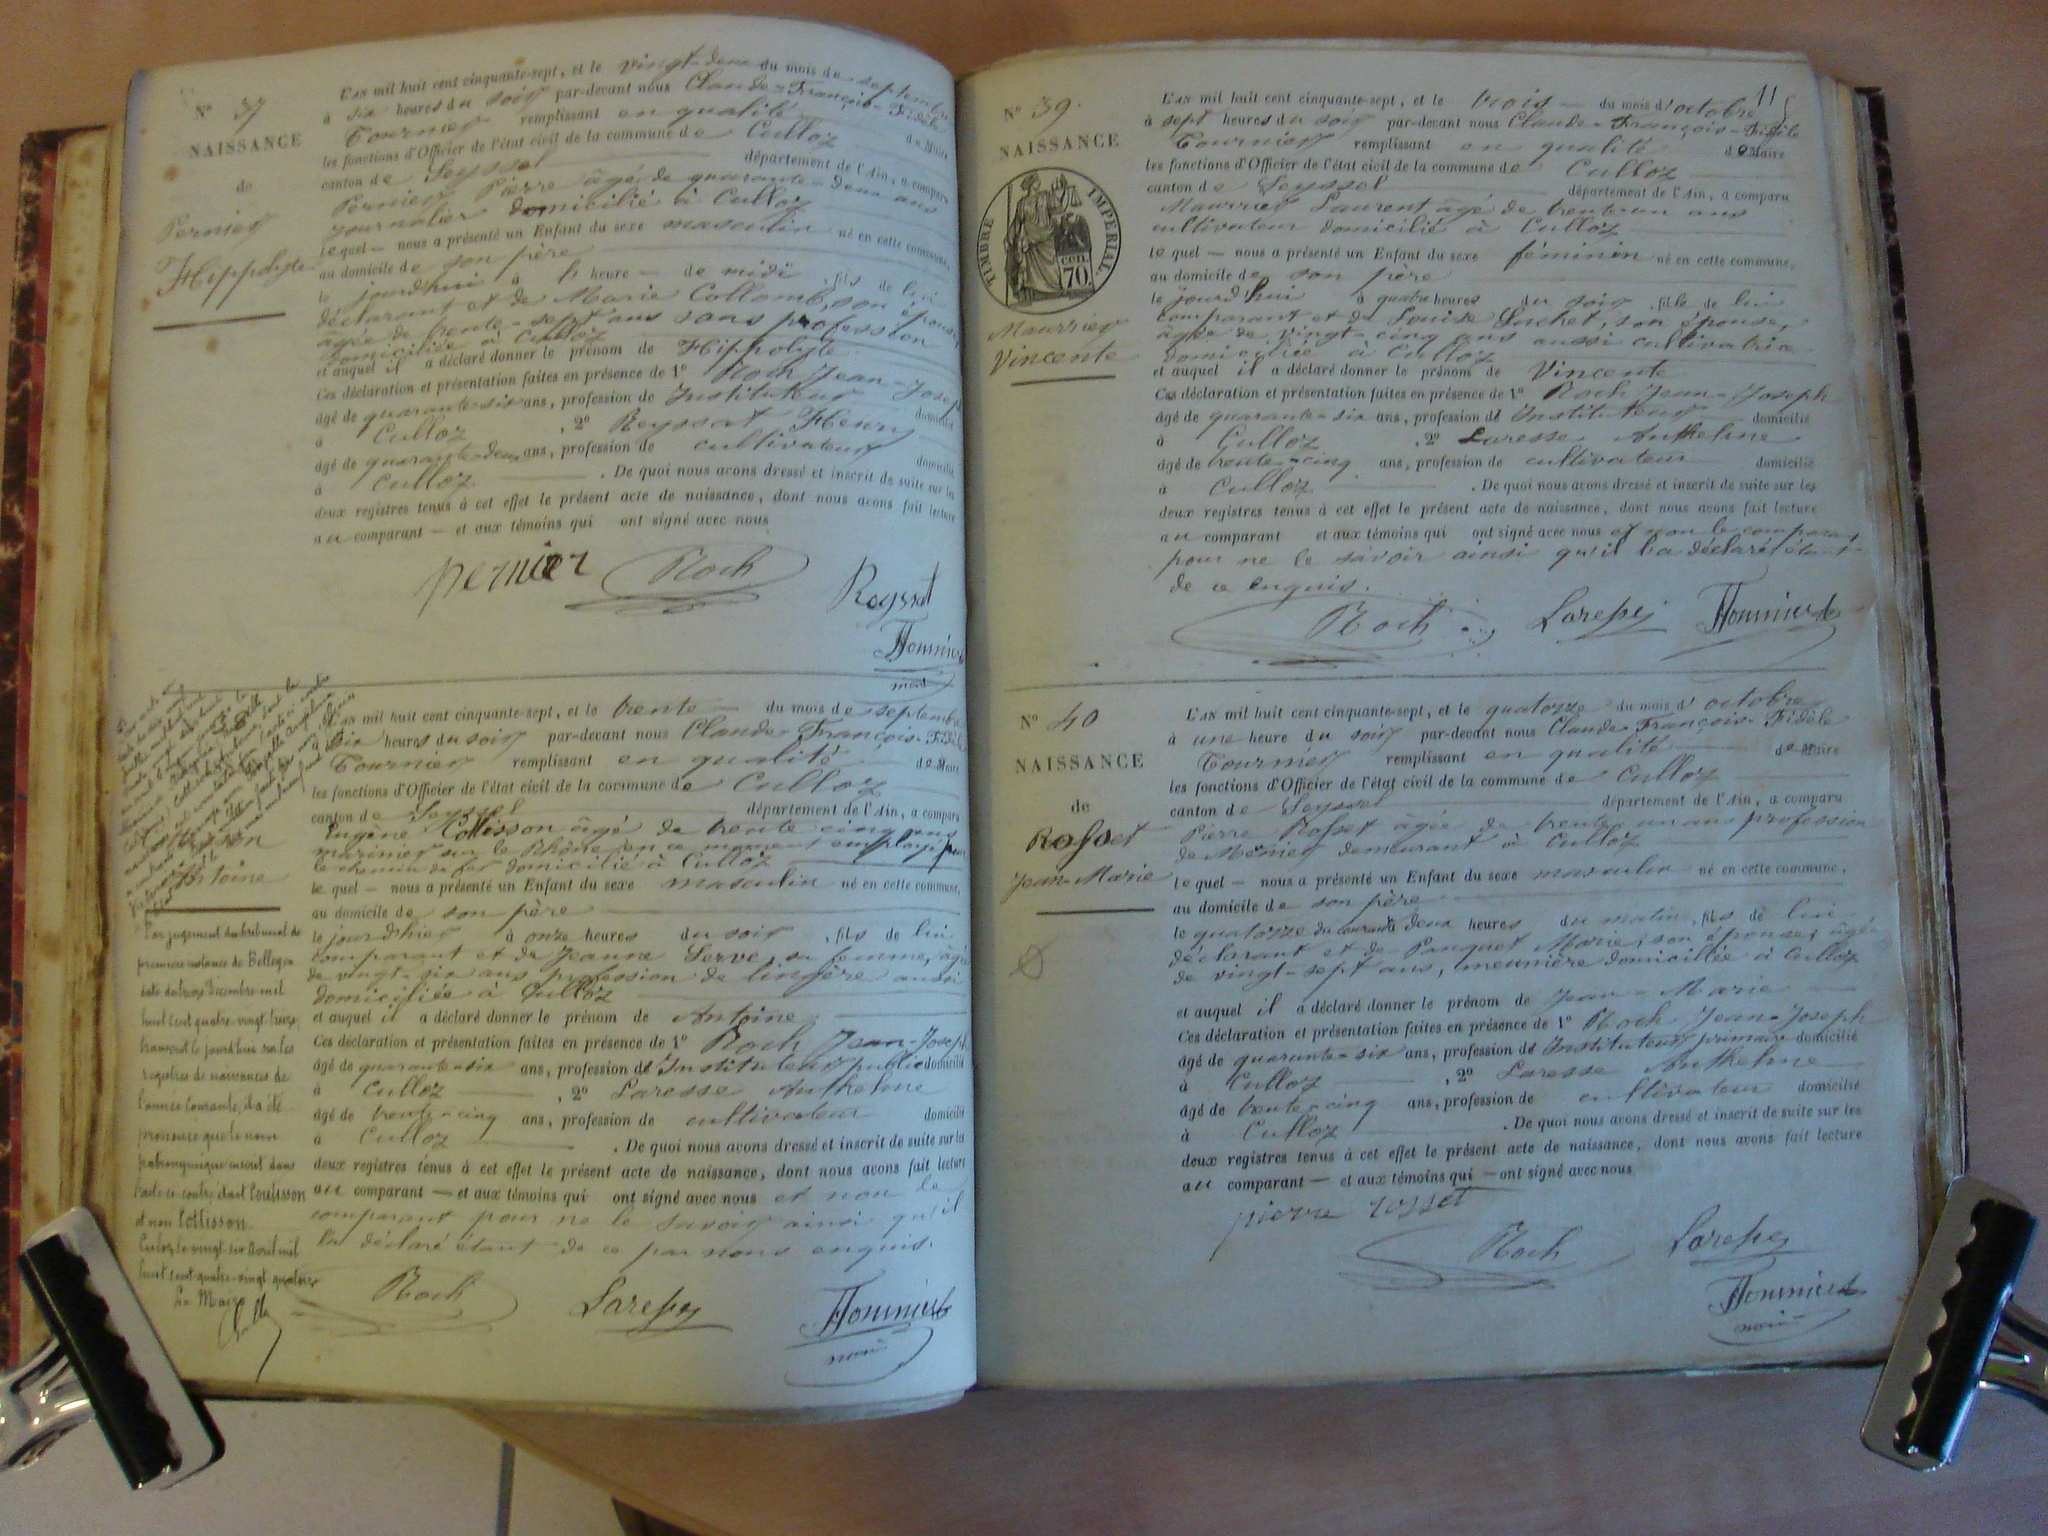 N° 37
NAISSANCE
de
Pernier
Hippolyte
L'an mil huit cent cinquante-sept, et le vingt-deux du mois de septembre
à six heures du soir par-devant nous Claude-François-Fidèle
Tournier remplissant en qualité de Maire
les fonctions d'Officier de l'état civil de la commune de Culloz
canton de Seyssel département de l'Ain, a comparu
Pernier Pierre âgé de quarante-deux ans
journalier domicilié à Culloz
lequel nous a présenté un Enfant du sexe masculin né en cette commune,
au domicile de son père
le jourd'hui à heure de midi, fils de lui
déclarant et de Marie Collomb, son épouse,
âgée de trente-sept ans sans profession
domiciliée à Culloz
et auquel il a déclaré donner le prénom de Hippolyte
Ces déclaration et présentation faites en présence de 1° Roch Jean-Joseph
âgé de quarante-six ans, profession de Instituteur domicilié
à Culloz, 2° Reyssat Henry
âgé de quarante-deux ans, profession de cultivateur domicilié
à Culloz. De quoi nous avons dressé et inscrit de suite sur les
deux registres tenus à cet effet le présent acte de naissance, dont nous avons fait lecture
au comparant et aux témoins qui ont signé avec nous
pernier Roch Reyssat
Tournier
L'an mil huit cent cinquante-sept, et le trente du mois de septembre
à six heures du soir par-devant nous Claude-François-Fidèle
Tournier remplissant en qualité de Maire
les fonctions d'Officier de l'état civil de la commune de Culloz
canton de Seyssel département de l'Ain, a comparu
Eugène Cottisson âgé de trente cinq ans
marinier sur le Rhône en ce moment employé pour
le chemin de fer domicilié à Culloz
lequel nous a présenté un Enfant du sexe masculin né en cette commune,
au domicile de son père
le jourd'hier à onze heures du soir, fils de lui
comparant et de Jeanne Serve, sa femme, âgée
de vingt-six ans profession de lingère aussi
domiciliée à Culloz
et auquel il a déclaré donner le prénom de Antoine
Ces déclaration et présentation faites en présence de 1° Roch Jean-Joseph
âgé de quarante-six ans, profession de Instituteur public domicilié
à Culloz, 2° Laresse Anthelme
âgé de trente-cinq ans, profession de cultivateur domicilié
à Culloz. De quoi nous avons dressé et inscrit de suite sur les
deux registres tenus à cet effet le présent acte de naissance, dont nous avons fait lecture
au comparant et aux témoins qui ont signé avec nous et non le
comparant pour ne le savoir ainsi qu'il
l'a déclaré étant de ce par nous enquis.
Roch Laresse Tournier
maire
Antoine
Par jugement du tribunal de
première instance de Belley en
date du treize Décembre mil
huit cent quatre-vingt treize,
transcrit le jourd'hui sur les
registres de naissances de
l'année courante, il a été
prononcé que le nom
patronymique inscrit dans
l'acte ci-contre était Coutisson
et non Cottisson
Culoz le vingt six Avril mil
huit cent quatre-vingt quatorze
Le Maire
11
N° 39.
NAISSANCE
TIMBRE IMPÉRIAL
70 cen.
Maurrier
Vincente
L'an mil huit cent cinquante-sept, et le trois du mois d'octobre
à sept heures du soir par-devant nous Claude-François-Fidèle
Tournier remplissant en qualité de Maire
les fonctions d'Officier de l'état civil de la commune de Culloz
canton de Seyssel département de l'Ain, a comparu
Maurrier Laurent âgé de trente un ans
cultivateur domicilié à Culloz
lequel nous a présenté un Enfant du sexe féminin né en cette commune,
au domicile de son père
le jourd'hui à quatre heures du soir, fille de lui
comparant et de Louise Luchet, son épouse,
âgée de vingt-cinq ans aussi cultivatrice
domiciliée à Culloz
et auquel il a déclaré donner le prénom de Vincente
Ces déclaration et présentation faites en présence de 1° Roch Jean-Joseph
âgé de quarante-six ans, profession de Instituteur domicilié
à Culloz, 2° Laresse Anthelme
âgé de trente-cinq ans, profession de cultivateur domicilié
à Culloz. De quoi nous avons dressé et inscrit de suite sur les
deux registres tenus à cet effet le présent acte de naissance, dont nous avons fait lecture
au comparant et aux témoins qui ont signé avec nous et non le comparant
pour ne le savoir ainsi qu'il l'a déclaré étant
de ce enquis.
Roch Laresse Tournier
N° 40
NAISSANCE
de
Rosset
Jean-Marie
L'an mil huit cent cinquante-sept, et le quatorze du mois d'octobre
à une heure du soir par-devant nous Claude-François-Fidèle
Tournier remplissant en qualité de Maire
les fonctions d'Officier de l'état civil de la commune de Culloz
canton de Seyssel département de l'Ain, a comparu
Pierre Rosset âgée de trente un ans profession
de Mûnier demeurant à Culloz
lequel nous a présenté un Enfant du sexe masculin né en cette commune,
au domicile de son père
le quatorze du courant à deux heures du matin, fils de lui
déclarant et de Panquet Marie, son épouse, âgée
de vingt-sept ans, meunière domiciliée à Culloz
et auquel il a déclaré donner le prénom de Jean-Marie
Ces déclaration et présentation faites en présence de 1° Roch Jean-Joseph
âgé de quarante-six ans, profession de Instituteur primaire domicilié
à Culloz, 2° Laresse Anthelme
âgé de trente-cinq ans, profession de cultivateur domicilié
à Culloz. De quoi nous avons dressé et inscrit de suite sur les
deux registres tenus à cet effet le présent acte de naissance, dont nous avons fait lecture
au comparant et aux témoins qui ont signé avec nous
pierre rosset
Roch Laresse
Tournier
maire